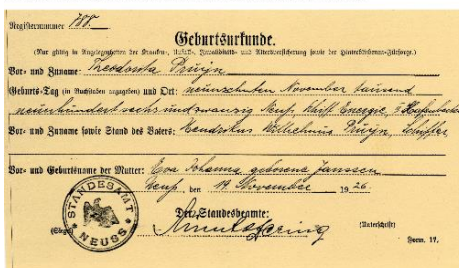 Registernummer 788.
Geburtsurkunde.
(Nur gültig in Angelegenheiten der Kranken-, Unfall-, Invaliditäts- und Altersversicherung sowie der Hinterbliebenen-Fürsorge.)
Vor- und Zuname: Theodorta Pruijn
Geburts-Tag (in Buchstaben angegeben) und Ort: neunzehnten November tausend
neunhundert sechs und zwanzig Neuß, Schiff Energie, Hafenbecken
Vor- und Zuname sowie Stand des Vaters: Hendrikus Wilhelmus Pruijn, Schiffer
Vor- und Geburtsname der Mutter: Eva Johanna geborene Janssen
Neuß, den 19 November 1926
Der Standesbeamte:
STANDESAMT NEUSS
(Siegel)
(Unterschrift)
Form. 17.